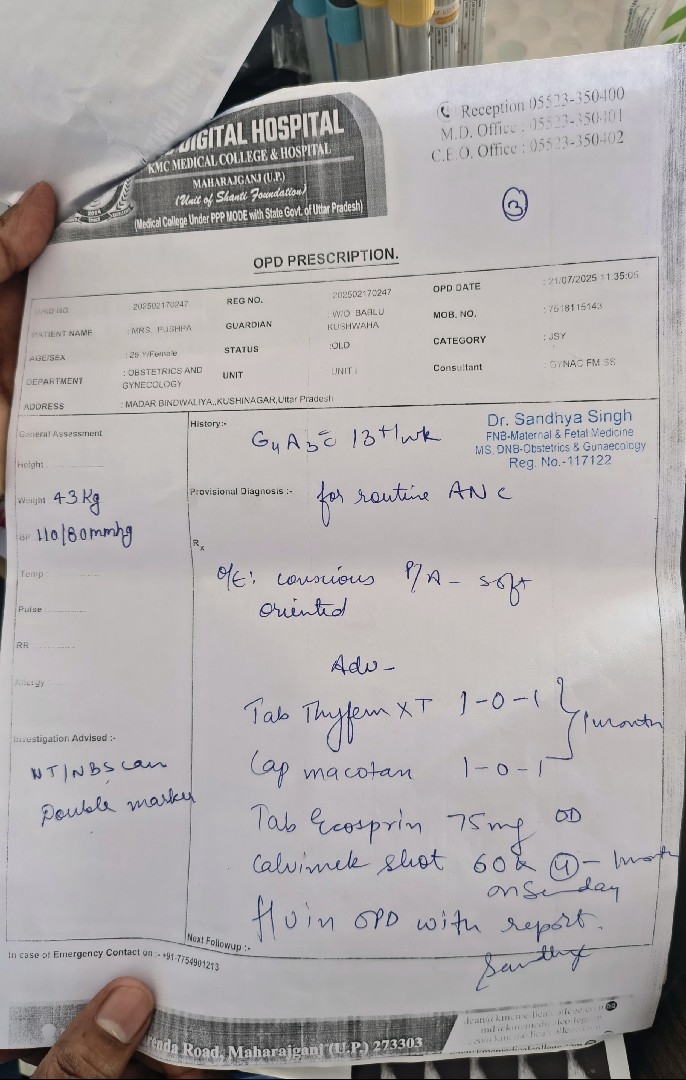 DIGITAL HOSPITAL
KMC MEDICAL COLLEGE & HOSPITAL
MAHARAJGANJ (U.P.)
(Unit of Shanti Foundation)
(Medical College Under PPP MODE with State Govt. of Uttar Pradesh)
Reception 05523-350400
M.D. Office : 05523-350401
C.E.O. Office : 05523-350402
3
OPD PRESCRIPTION.
NO. 202502170247 REG NO. 202502170247 OPD DATE : 21/07/2025 11:35:05
PATIENT NAME : MRS. PUSHPA GUARDIAN : W/O BABLU KUSHWAHA MOB. NO. : 7618115143
AGE/SEX : 25 Y/Female STATUS :OLD CATEGORY : JSY
DEPARTMENT : OBSTETRICS AND GYNECOLOGY UNIT : UNIT I Consultant : GYNAC FM SS
ADDRESS : MADAR BINDWALIYA,,KUSHINAGAR,Uttar Pradesh
General Assessment
Height
Weight 43 Kg
BP 110/80mmhg
Temp
Pulse
RR
Allergy
Investigation Advised :-
NT/NB Scan
Double marker
History:-
G4A3 c̄ 13+1wk
Dr. Sandhya Singh
FNB-Maternal & Fetal Medicine
MS, DNB-Obstetrics & Gunaecology
Reg. No.-117122
Provisional Diagnosis :- for routine ANC
Rx
O/E: conscious P/A - soft
oriented
Adv -
Tab Thyfern XT 1-0-1
Cap macotan 1-0-1
1 month
Tab Ecosprin 75mg OD
Calvimek shot 60k 4 - 1 month
on Sunday
f/u in OPD with report.
Next Followup :-
In case of Emergency Contact on :- +91-7754901213
Road, Maharajganj (U.P.) 273303